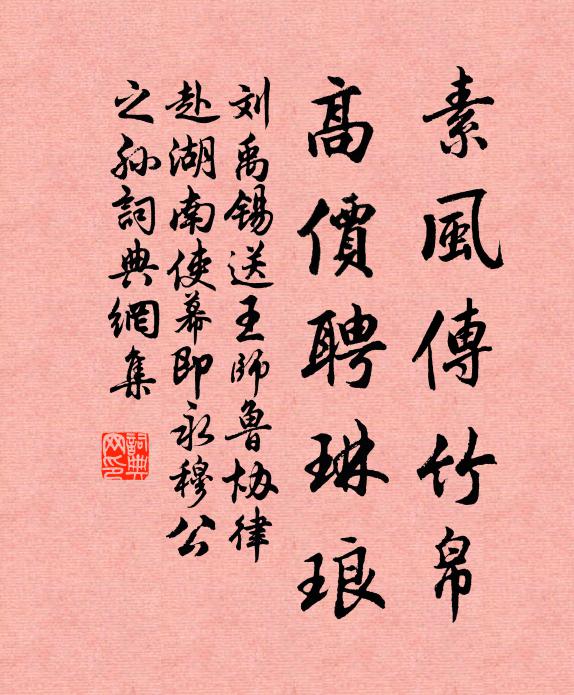 素風傳竹帛
高價聘琳琅
刘禹锡送王師魯协律
赴湖南使幕即永穆公
之孙詞典網集
詞典
网印